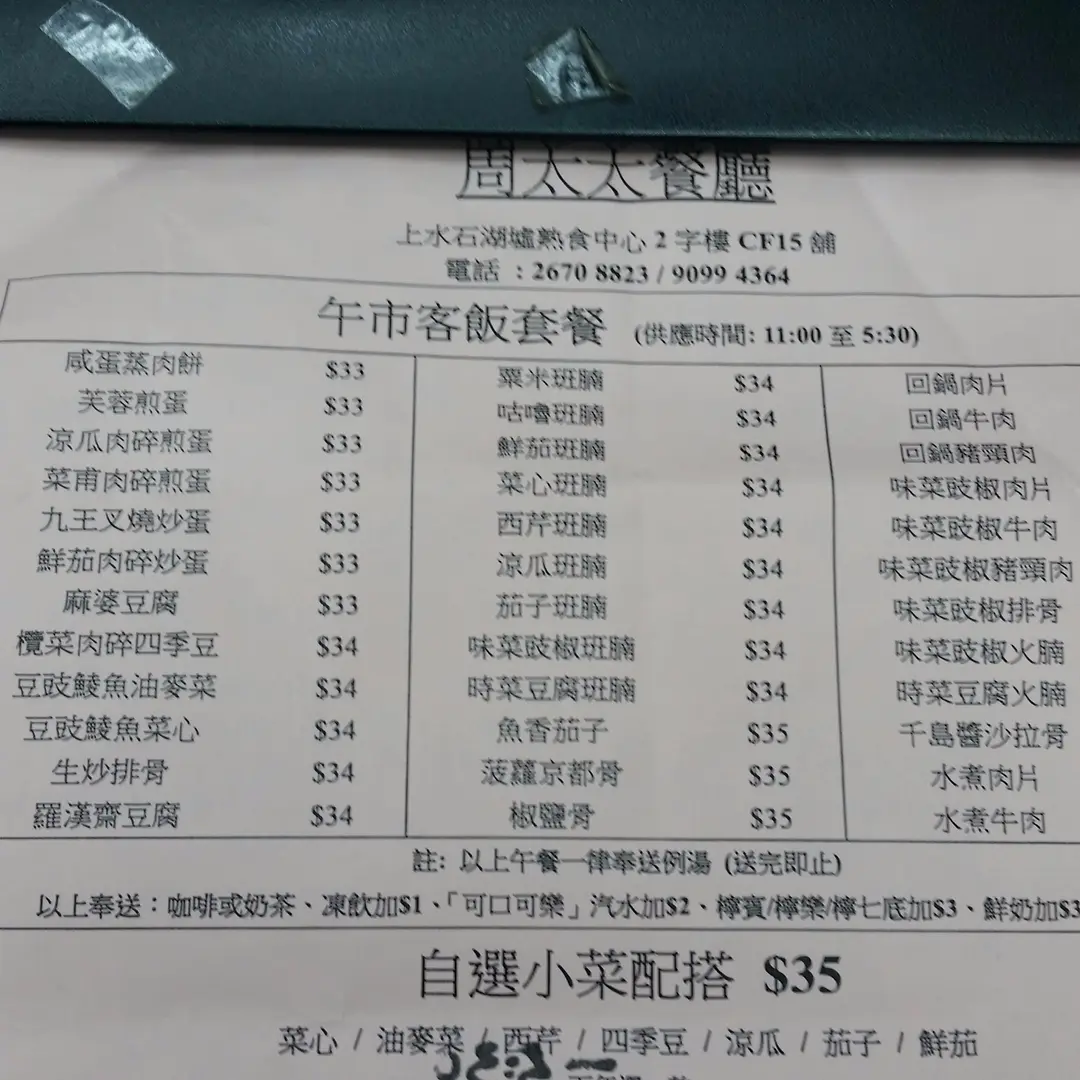 周太太餐廳
上水石湖墟熟食中心 2 字樓 CF15 舖
電話 : 2670 8823 / 9099 4364
午市客飯套餐 (供應時間: 11:00 至 5:30)
咸蛋蒸肉餅 $33
芙蓉煎蛋 $33
涼瓜肉碎煎蛋 $33
菜甫肉碎煎蛋 $33
九王叉燒炒蛋 $33
鮮茄肉碎炒蛋 $33
麻婆豆腐 $33
欖菜肉碎四季豆 $34
豆豉鯪魚油麥菜 $34
豆豉鯪魚菜心 $34
生炒排骨 $34
羅漢齋豆腐 $34
粟米班腩 $34
咕嚕班腩 $34
鮮茄班腩 $34
菜心班腩 $34
西芹班腩 $34
涼瓜班腩 $34
茄子班腩 $34
味菜豉椒班腩 $34
時菜豆腐班腩 $34
魚香茄子 $35
菠蘿京都骨 $35
椒鹽骨 $35
回鍋肉片
回鍋牛肉
回鍋豬頸肉
味菜豉椒肉片
味菜豉椒牛肉
味菜豉椒豬頸肉
味菜豉椒排骨
味菜豉椒火腩
時菜豆腐火腩
千島醬沙拉骨
水煮肉片
水煮牛肉
註: 以上午餐一律奉送例湯 (送完即止)
以上奉送：咖啡或奶茶、凍飲加$1、「可口可樂」汽水加$2、檸賓/檸樂/檸七底加$3、鮮奶加$3
自選小菜配搭 $35
菜心 / 油麥菜 / 西芹 / 四季豆 / 涼瓜 / 茄子 / 鮮茄